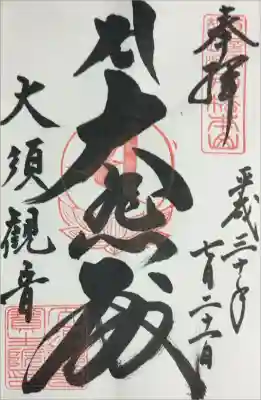 奉拝
平成三十年
月二十一日
大悲殿
大須觀音